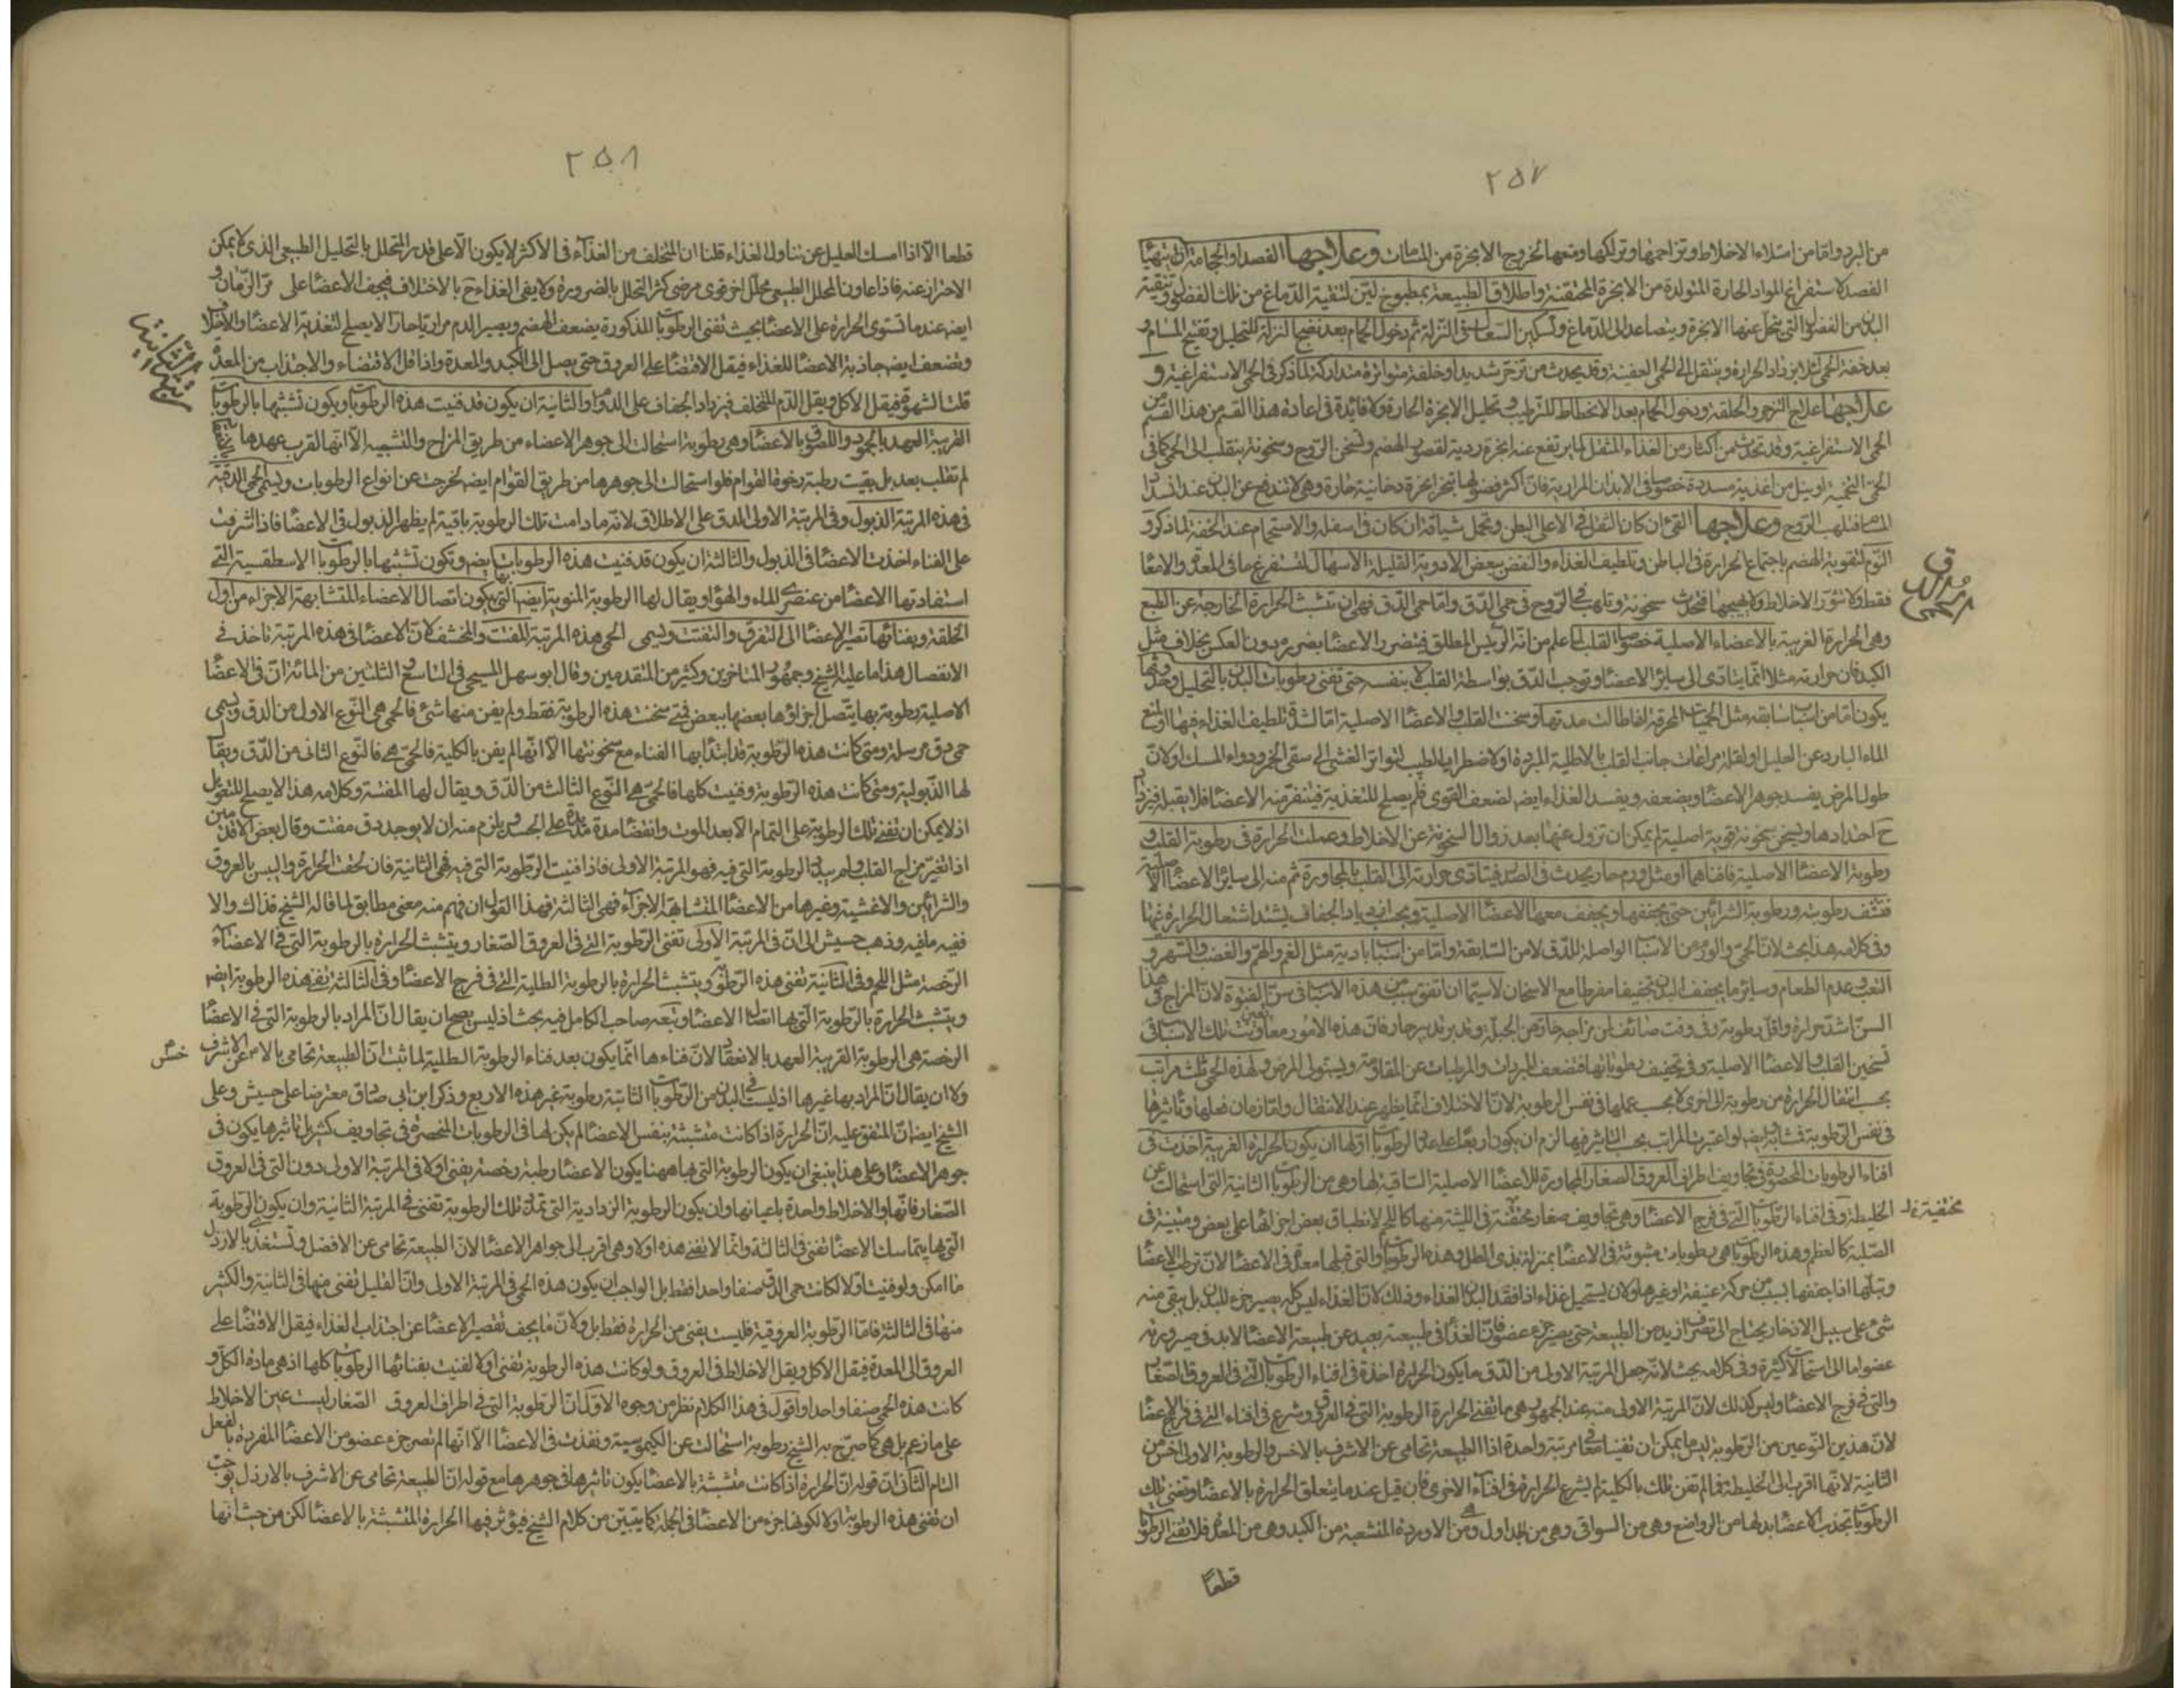 ٢٥٧
من البرد واما من امتلاء الاخلاط وتزاحمها وتراكمها ومنعها لخروج الابخرة من المسامات وعلاجها الفصد او الحجامة
الفصد لاستفراغ المواد الحارة المتولدة من الابخرة المحتقنة واطلاق الطبيعة بمطبوخ لين لتنقية الدماغ من تلك الفضول وتنقية
البدن من الفضول التى يتحلل عنها الابخرة ويتصاعد الى الدماغ وتسكين السعال النزلة ثم دخول الحمام بعد نضج النزلة للتحليل وتفتيح المسام و
بعد خفة الحمى لئلا يزداد الحرارة وينتقل الى الحمى العفنية وقد يحدث من تزحر شديد او خلفة متواترة متداركة لما ذكر فى الحمى الاستفراغية و
علاجها علاج الزحير والخلفة ودخول الحمام بعد الانحطاط للترطيب وتحليل الابخرة الحارة ولا فائدة فى اعادة هذا القسم من هذا القسم
الحمى الاستفراغية وقد تحدث من اكثار من الغذاء المثقل لما يرتفع عنه ابخرة ردية لقصور الهضم وتسخن الروح وسخونة ينقلب الى الحمى كما فى
الحمى التخمية او ينيل من اغذية مسددة خصوصا فى الابدان المرارية فان اكثر فضولها تبخر ابخرة دخانية حارة وهى لا تندفع عن البدن عند انسداد
المسام فتلهب الروح وعلاجها القئ ان كان الثقل فى الاعلى البطن وتحمل شيافة ان كان فى اسفله والاستحمام عند الخفة لما ذكر و
النوم لتقوية الهضم باجتماع الحرارة فى الباطن وتلطيف الغذاء والنفض ببعض الادوية القليلة الاسهال لتستفرغ ما فى المعدة والامعا
فقط ولا تثور الاخلاط ولا يهيجها فتحدث سخونة وتلهب فى الروح فى حمى الدق واما حمى الدق فهى ان تتشبث الحرارة الخارجة عن الطبع
وهى الحرارة الغريبة بالاعضاء الاصلية خصوصا القلب لما علم من انه الرئيس المطلق فيتضرر الاعضا بضرره دون العكس بخلاف مثل
الكبد فان حرارته مثلا انما يتادى الى سائر الاعضا وتوجب الدق بواسطة القلب لا بنفسه حتى تفنى رطوبات البدن بالتحليل
يكون اما من اسباب سابقة مثل الحميات المحرقة اذا طالت مدتها وسخنت القلب والاعضا الاصلية اما لشدة تلطيف الغذاء فيها او لمنع
الماء البارد عن العليل او لقلة مراعات جانب القلب بالاطلية المبردة او لاضطرار الطبيب لتواتر الغشى الى سقى الخمر ودواء المسك او لان
طول المرض يفسد جوهر الاعضا ويضعفه ويفسد الغذاء ايضا لضعف القوى فلم يصلح للتغذية فيتنفر منه الاعضا فلا يقبله
ح احتدادها ويسخن سخونة قوية اصلية لم يمكن ان تزول عنها بعد زوال السخونة عن الاخلاط وعملت الحرارة فى رطوبة القلب و
رطوبة الاعضا الاصلية فافناها او مثل ورم حار يحدث فى الصدر فيتادى حرارته الى القلب بالمجاورة ثم منه الى سائر الاعضا الاصلية
فتنشف رطوبته ورطوبة الشرائين حتى يجففها ويجفف معها الاعضا الاصلية وبحسب ازدياد الجفاف يشتد اشتعال الحرارة فيها
وفى كلامه هذا بحث لان الحمى والورم من الاسباب الواصلة للدق لا من السابقة واما من اسباب بادية مثل الغم والهم والغضب والسهر و
التعب وعدم الطعام وسائر ما يجفف البدن تجفيفا مفرطا مع الاسخان لاسيما ان تتفق سبب من هذه الاسباب فى سن الفتوة لان المزاج فى هذا
السن اشد حرارة واقل رطوبة وفى وقت صائف لمن مزاجه حار من الجبلة وتدبير تدبير حار فان هذه الامور معاونت تلك الاسباب فى
تسخين القلب والاعضا الاصلية وفى تجفيف رطوباتها فتضعف المبردات والمرطبات عن المقاومة ويستولى المرض ولهذه الحمى ثلث مراتب
بحسب انتقال الحرارة من رطوبة الى اخرى لا بحسب عملها فى نفس الرطوبة لان الاختلاف انما يظهر عند الانتقال واما زمان فعلها وتأثيرها
فى نفس الرطوبة فتشابه ايضا لو اعتبرت المراتب بحسب التاثير فيها لزم ان يكون اربعا على عدد الرطوبات اولها ان يكون الحرارة الغريبة اخذت فى
افناء الرطوبات المحصورة فى تجاويف اطراف العروق الصغار المجاورة للاعضا الاصلية الساقية لها وهى من الرطوبات الثانية التى استحالت عن
الخليطة وفى افناء الرطوبات التى فى فرج الاعضا وهى تجاويف صغار محتقنة فى اللينة منها كاللحم لانطباق بعض اجزائها على بعض ومبينة فى
الصلبة كالعظم وهذه الرطوبات هى رطوبات مبثوثة فى الاعضا بمنزلة ندى الطل وهذه الرطوبة والتى قبلها معدة فى الاعضا لان ترطب الاعضا
وتبلها اذا جففها بسبب من حركة عنيفة او غيرها ولان يستحيل غذاء اذا فقد البدن الغذاء وذلك لان الغذاء ليس كله يصير جزء للبدن بل يبقى منه
شئ على سبيل الادخار يحتاج الى تصرف ازيد من الطبيعة حتى يصير جزء عضو فان الغذاء فى طبيعته بعيد عن طبيعة الاعضا لابد فى صيرورته
عضوا ما الى استحالات كثيرة وفى كلامه بحث لانه جعل المرتبة الاولى من الدق ما يكون الحرارة اخذة فى افناء الرطوبات التى فى العروق الصغار
والتى فى فرج الاعضا وليس كذلك لان المرتبة الاولى منه عند الجمهور هى ما تفنى الحرارة الرطوبة التى فى العروق وشرع فى افناء التى فى فرج الاعضا
لان هذين النوعين من الرطوبة لم يمكن ان تفنيا معا مرتبة واحدة اذا الطبيعة تحامى عن الاشرف بالاخس والرطوبة الاولى اخس من
الثانية لانها اقرب الى الخليطة فما لم تفن تلك بالكلية لم يشرع الحرارة فى افناء الاخرى فان قيل عندما يتعلق الحرارة بالاعضا وتفنى تلك
الرطوبات تجذب الاعضا بدلها من الرواضع وهى من السواقى وهى من الجداول وهى من الاوردة المنشعبة من الكبد وهى من المعدة فلا تفنى الرطوبات
قطعا
الحمى الدق
محتفية
٢٥٨
قطعا الا اذا امسك العليل عن تناول الغذاء قلنا ان المتخلف من الغذاء فى الاكثر لا يكون الا على قدر المتحلل بالتحليل الطبيعى الذى لا يمكن
الاحتراز عنه فاذا عاون المحلل الطبيعى محلل اخر قوى مرضى كثر التحلل بالضرورة ولا يفى الغذاء ح بالاخلاف فيجف الاعضا على مر الزمان و
ايضا عندما تستوى الحرارة على الاعضا بحيث تفنى الرطوبات المذكورة يضعف الهضم ويصير الدم مراريا حارا لا يصلح لتغذية الاعضا
وتضعف ايضا جاذبة الاعضا للغذاء فيقل الاقتضا على العروق حتى يصل الى الكبد والمعدة واذا قل الاقتضاء والاجتذاب من المعدة
قلت الشهوة فيقل الاكل ويقل الدم المتخلف فيزداد الجفاف على الدوام والثانية ان يكون قد فنيت هذه الرطوبات ويكون تشبثها بالرطوبات
القريبة العهد بالجمود واللصوق بالاعضا وهى رطوبة استحالت الى جوهر الاعضاء من طريق المزاج والتشبيه الا انها لقرب عهدها
لم تصلب بعد بل بقيت رطبة رخوة القوام فلو استحالت الى جوهرها من طريق القوام ايضا لخرجت عن انواع الرطوبات ويسمى الحمى الدقية
فى هذه المرتبة الذبول وفى المرتبة الاولى الدق على الاطلاق لانه ما دامت تلك الرطوبة باقية لم يظهر الذبول فى الاعضا فاذا اشرفت
على الفناء اخذت الاعضا فى الذبول والثالثة ان يكون قد فنيت هذه الرطوبات ايضا وتكون تشبثها بالرطوبات الاسطقسية التى
استفادتها الاعضا من عنصرى الماء والهواء ويقال لها الرطوبة المنوية ايضا التى بها يكون اتصال الاعضاء المتشابهة الاجزاء من اول
الخلقة وبفنائها تصير الاعضا الى التفرق والتفتت ويسمى الحمى هذه المرتبة المفتت والمخشف لان الاعضا فى هذه المرتبة تاخذ فى
الانفصال هذا ما عليه الشيخ وجمهور المتاخرين وكثير من المتقدمين وقال ابو سهل المسيحى فى التاسع والثلثين من المائة ان فى الاعضا
الاصلية رطوبة بها يتصل اجزاؤها بعضها ببعض فمتى سخنت هذه الرطوبة فقط ولم يفن منها شئ فالحمى هى النوع الاول من الدق ويسمى
حمى دق مرسلة ومتى كانت هذه الرطوبة قد ابتدأ بها الفناء مع سخونتها الا انها لم يفن بالكلية فالحمى هى النوع الثانى من الدق ويقال
لها الذبولية ومتى كانت هذه الرطوبة وفنيت كلها فالحمى هى النوع الثالث من الدق ويقال لها المفتتة وكلامه هذا لا يصلح للتعويل
اذ لا يمكن ان تفنى تلك الرطوبة على التمام الا بعد الموت وانقضا مدة مديدة على الجسد ويلزم منه ان لا يوجد دق مفتت وقال بعض الاقدمين
اذا تغير مزاج القلب ولم يبد الرطوبة التى فيه فهو المرتبة الاولى فاذا فنيت الرطوبة التى فيه فهى الثانية فان لحقت الحرارة واليبس بالعروق
والشرائين والاغشية وغيرها من الاعضا المتشابهة الاجزاء فهى الثالثة فهذا القول ان فهم منه معنى مطابق لما قاله الشيخ فذاك والا
ففيه ما فيه وذهب حبيش الى ان فى المرتبة الاولى تفنى الرطوبة التى فى العروق الصغار ويتشبث الحرارة بالرطوبة التى فى الاعضاء
الرخصة مثل اللحم وفى الثانية تفنى هذه الرطوبة ويتشبث الحرارة بالرطوبة الطلية التى فى فرج الاعضا وفى الثالثة تفنى هذه الرطوبة ايضا
ويتشبث الحرارة بالرطوبة التى بها اتصال الاعضا وتبعه صاحب الكامل فيه بحث اذ ليس يصح ان يقال ان المراد بالرطوبة التى فى الاعضا
الرخصة هى الرطوبة القريبة العهد بالانعقاد لان فناءها انما يكون بعد فناء الرطوبة الطلية لما ثبت ان الطبيعة تحامى بالاخس عن الاشرف
ولا ان يقال ان المراد بها غيرها اذ ليست فى البدن من الرطوبات الثانية رطوبة غير هذه الاربع وذكر ابن ابى صادق معترضا على حبيش وعلى
الشيخ ايضا ان المتفق عليه ان الحرارة اذا كانت متشبثة بنفس الاعضا لم يكن لها فى الرطوبات المنحصرة فى تجاويف كثير بل تاثيرها يكون فى
جوهر الاعضا وعلى هذا ينبغى ان يكون الرطوبة التى بها ههنا يكون الاعضا رطبة رخصة يفنى اولا فى المرتبة الاولى دون التى فى العروق
الصغار فانها والاخلاط واحدة باعيانها وان يكون الرطوبة الرذاذية التى تمد تلك الرطوبة تفنى فى المرتبة الثانية وان يكون الرطوبة
التى بها يتماسك الاعضا تفنى فى الثالثة وانما لا تفنى هذه اولا وهى اقرب الى جواهر الاعضا لان الطبيعة تحامى عن الافضل وتستغذى بالارذل
ما امكن ولو فنيت اولا لكانت حمى الدق صنفا واحدا فقط بل الواجب ان يكون هذه الحمى فى المرتبة الاولى وان القليل تفنى منها فى الثانية والكثير
منها فى الثالثة فاما الرطوبة العروقية فليست يفنى من الحرارة فقط بل ولان ما يجف تقصير الاعضا عن اجتذاب الغذاء فيقل الاقتضا على
العروق الى المعدة فيقل الاكل ويقل الاخلاط فى العروق ولو كانت هذه الرطوبة تفنى اولا لفنيت بفنائها الرطوبات كلها اذ هى مادة الكل و
كانت هذه الحمى صنفا واحدا واقول فى هذا الكلام نظر من وجوه الاول ان الرطوبة التى فى اطراف العروق الصغار ليست عين الاخلاط
على ما زعم بل هى كما صرح به الشيخ رطوبة استحالت عن الكيموسية ونفذت فى الاعضا الا انها لم تصر جزء عضو من الاعضا المفردة بالفعل
التام الثانى ان قوله ان الحرارة اذا كانت متشبثة بالاعضا يكون تاثيرها فى جوهرها مع قوله ان الطبيعة تحامى عن الاشرف بالارذل يوجب
ان تفنى هذه الرطوبة اولا لكونها جزء من الاعضا فى الجملة كما يتبين من كلام الشيخ فيؤثر فيها الحرارة المتشبثة بالاعضا لكن من حيث انها